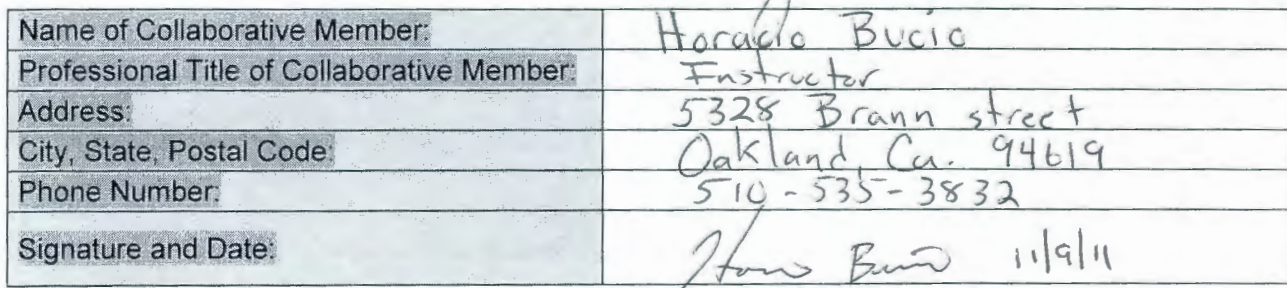 Name of Collaborative Member: Horacio Bucio
Professional Title of Collaborative Member: Instructor
Address: 5328 Brann street
City, State, Postal Code: Oakland, Ca. 94619
Phone Number: 510-535-3832
Signature and Date: 11/9/11